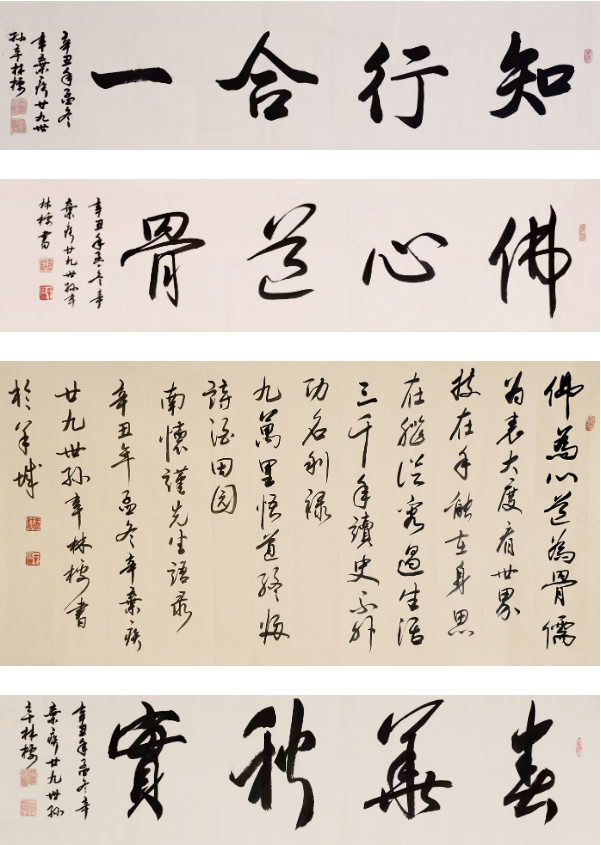 知行合一
辛丑年孟冬
辛棄疾廿九世
孙辛林樓
佛心道骨
辛丑年孟冬辛
棄疾廿九世孙辛
林樓書
佛為心道為骨儒
为表大度看世界
技在手能在身思
在腦從容過生活
三千年讀史不外
功名利祿
九萬里悟道終歸
詩酒田园
南懷瑾先生語录
辛丑年孟冬辛棄疾
廿九世孙辛林樓書
於羊城
春華秋實
辛丑年孟冬辛
棄疾廿九世孙
辛林樓